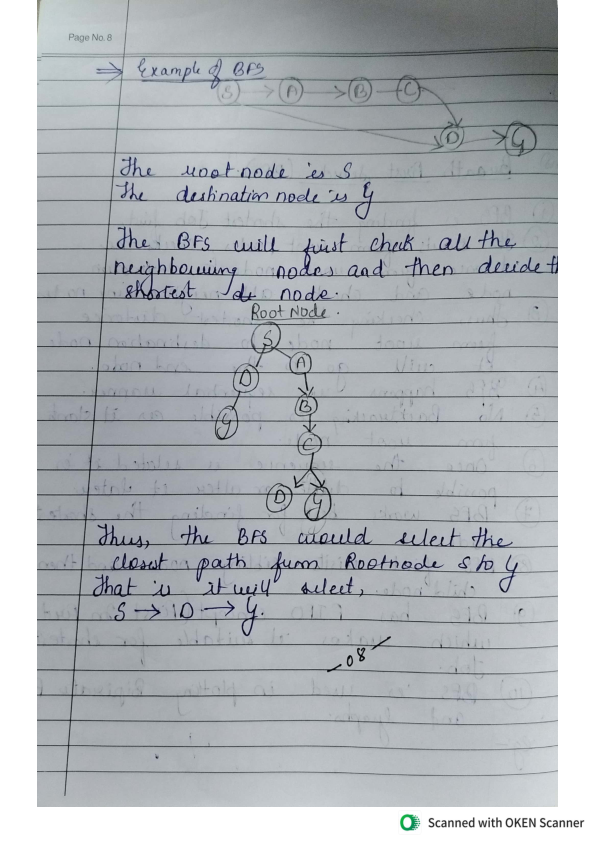 Page No. 8
⇒ Example of BFS
S → A → B C
D → G
The root node is S
The destination node is G
The BFS will first check all the
neighbouring nodes and then decide th
shortest de node.
Root Node.
S
D A
G B
C
D G
Thus, the BFS would select the
closest path from Rootnode S to G
That is it will select,
S → D → G.
08
Scanned with OKEN Scanner